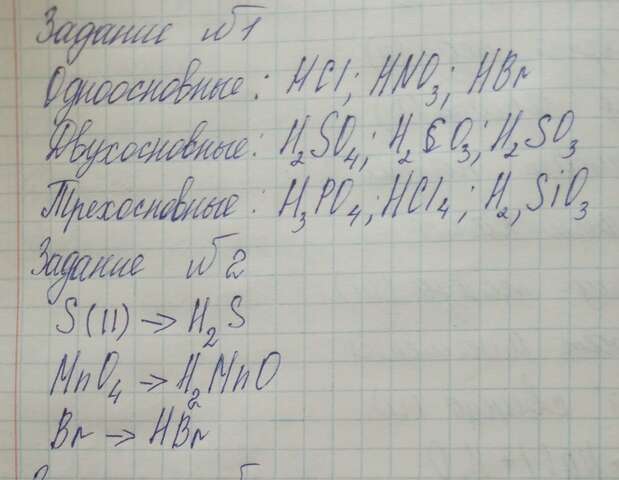 Задание №1
Одноосновные: HCl; HNO₃; HBr
Двухосновные: H₂SO₄; H₂CO₃; H₂SO₃
Трехосновные: H₃PO₄; HCl₄; H₂SiO₃
Задание №2
S(II) → H₂S
MnO₄ → H₂MnO
Br → HBr